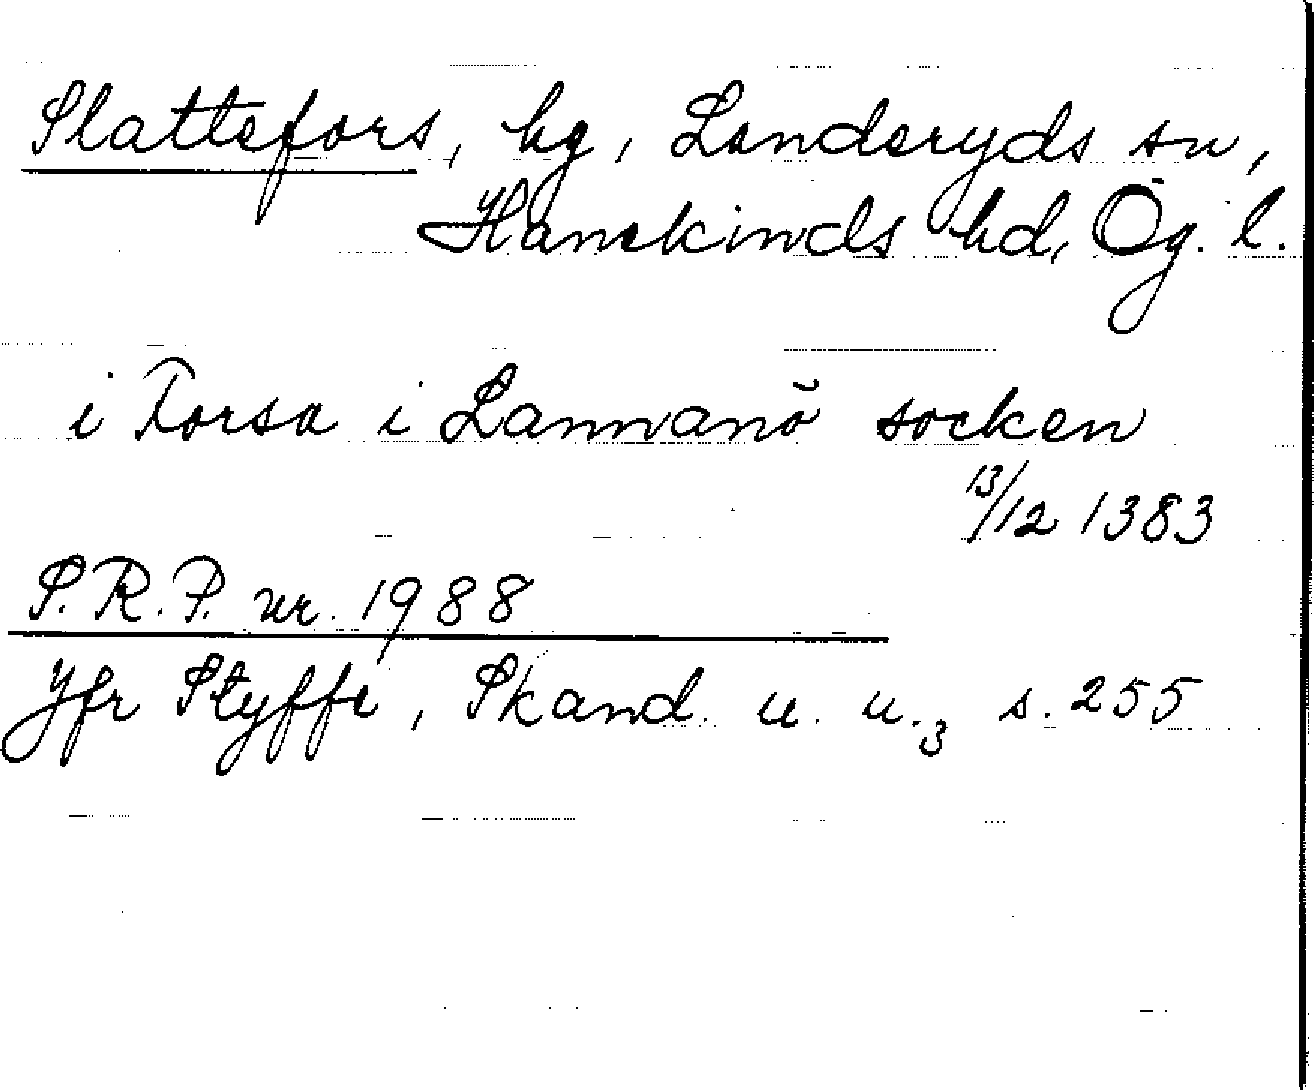 Slattefors, hg, Landeryds sn,
Hanekinds hd, Ög. l.
i Forsa i Lannanö socken
13/12 1383
S.R.P. nr. 1988
Jfr Styffe, Skand. u. u.3 s. 255